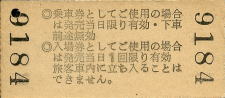 9184
◎乗車券としてご使用の場合
は発売当日限り有効・下車
前途無効
◎入場券としてご使用の場合
は発売当日1回限り有効
旅客車内に立ち入ることは
できません。
9184